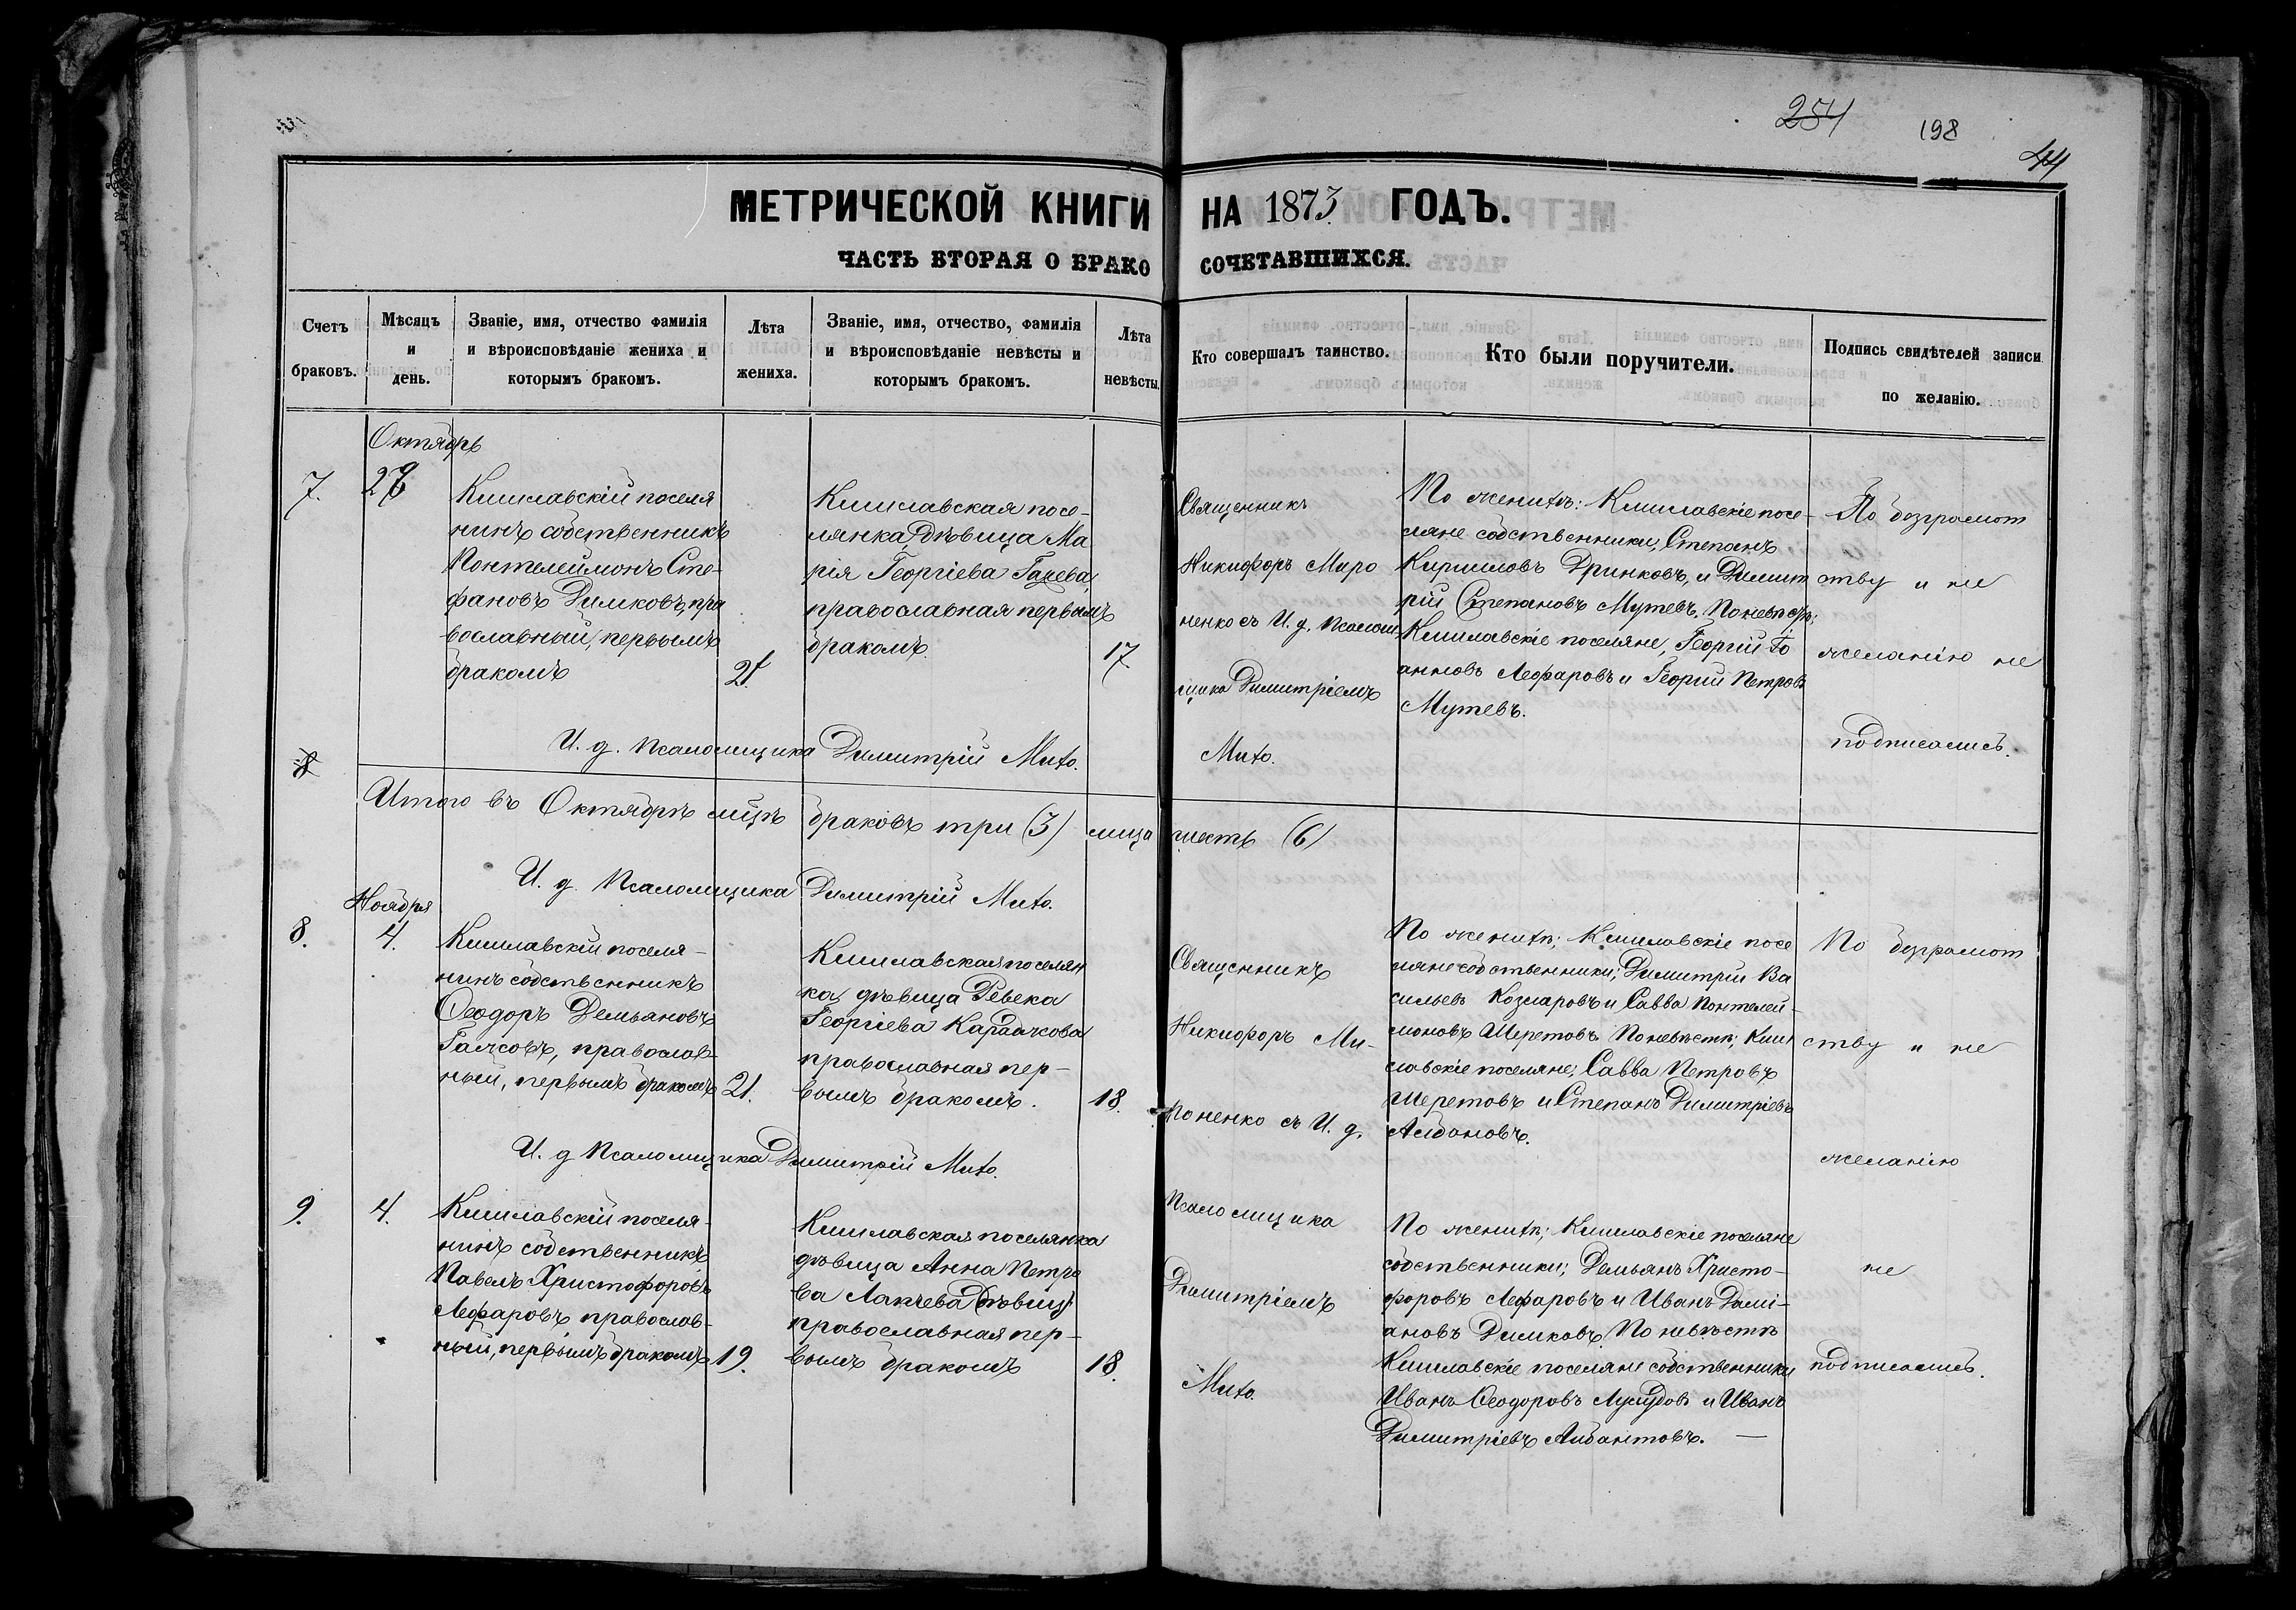 254
198
44
МЕТРИЧЕСКОЙ КНИГИ НА 1873 ГОДЪ.
ЧАСТЬ ВТОРАЯ О БРАКОСОЧЕТАВШИХСЯ.
Счетъ браковъ.
Мѣсяцъ и день.
Званіе, имя, отчество фамилія и вѣроисповѣданіе жениха и которымъ бракомъ.
Лѣта жениха.
Званіе, имя, отчество, фамилія и вѣроисповѣданіе невѣсты и которымъ бракомъ.
Лѣта невѣсты.
Кто совершалъ таинство.
Кто были поручители.
Подпись свидѣтелей записи по желанію.
Октябрь
7.
28
Кишлавскій поселя
нинъ собственникъ
Понтелеймонъ Сте-
фановъ Димковъ, пра
вославный, первымъ
бракомъ
21.
Кишлавская посе-
лянка, дѣвица Ма
рія Георгіева
православная первымъ
бракомъ.
17
Священникъ
Никифоръ Миро
ненко съ И. д. Псалом
щика Димитріемъ
Мито.
По женихѣ: Кишлавскіе посе-
ляне собственники, Степанъ
Кирилловъ Дринковъ, и Димит
рій Степановъ Мутевъ. По невѣстѣ:
Кишлавскіе поселяне, Георгій Іо
анновъ Лефаровъ и Георгій Петровъ
Мутевъ.
По безграмот
ству и не
желанію не
подписались.
И. д. Псаломщика Димитрій Мито.
8
Итого въ Октябрѣ мцѣ браковъ три (3) лица шесть (6)
И. д. Псаломщика Димитрій Мито.
Ноября
8.
4.
Кишлавскій поселя-
нинъ собственникъ
Ѳеодоръ Демьяновъ
православ-
ный, первымъ бракомъ
21.
Кишлавская поселян
ка, дѣвица Ревека
Георгіева
православная пер-
вымъ бракомъ.
18.
Священникъ
Никифоръ Ми-
роненко съ И. д.
Псаломщика
Димитріемъ
Мито.
По женихѣ; Кишлавскіе посе
ляне собственники; Димитрій Ва
сильевъ Козларовъ и Савва Понтелей-
моновъ Шеретовъ. По невѣстѣ; Киш
лавскіе поселяне; Савва Петровъ
Шеретовъ и Степанъ Димитріевъ
Албановъ.
По безграмот
ству и не
желанію
не
подписались.
И. д Псаломщика Димитрій Мито.
9.
4.
Кишлавскій поселя-
нинъ собственникъ
Павелъ Христофоровъ
Лефаровъ православ-
ный, первымъ бракомъ
19.
Кишлавская поселянка
дѣвица Анна Петро
ва Лапчева
православная пер-
вымъ бракомъ
18.
По женихѣ; Кишлавскіе поселяне
собственники; Демьянъ Христо-
форовъ Лефаровъ и Иванъ Дамі-
ановъ Димковъ. По невѣстѣ
Кишлавскіе поселяне собственники
Иванъ Ѳеодоровъ и Иванъ
Димитріевъ